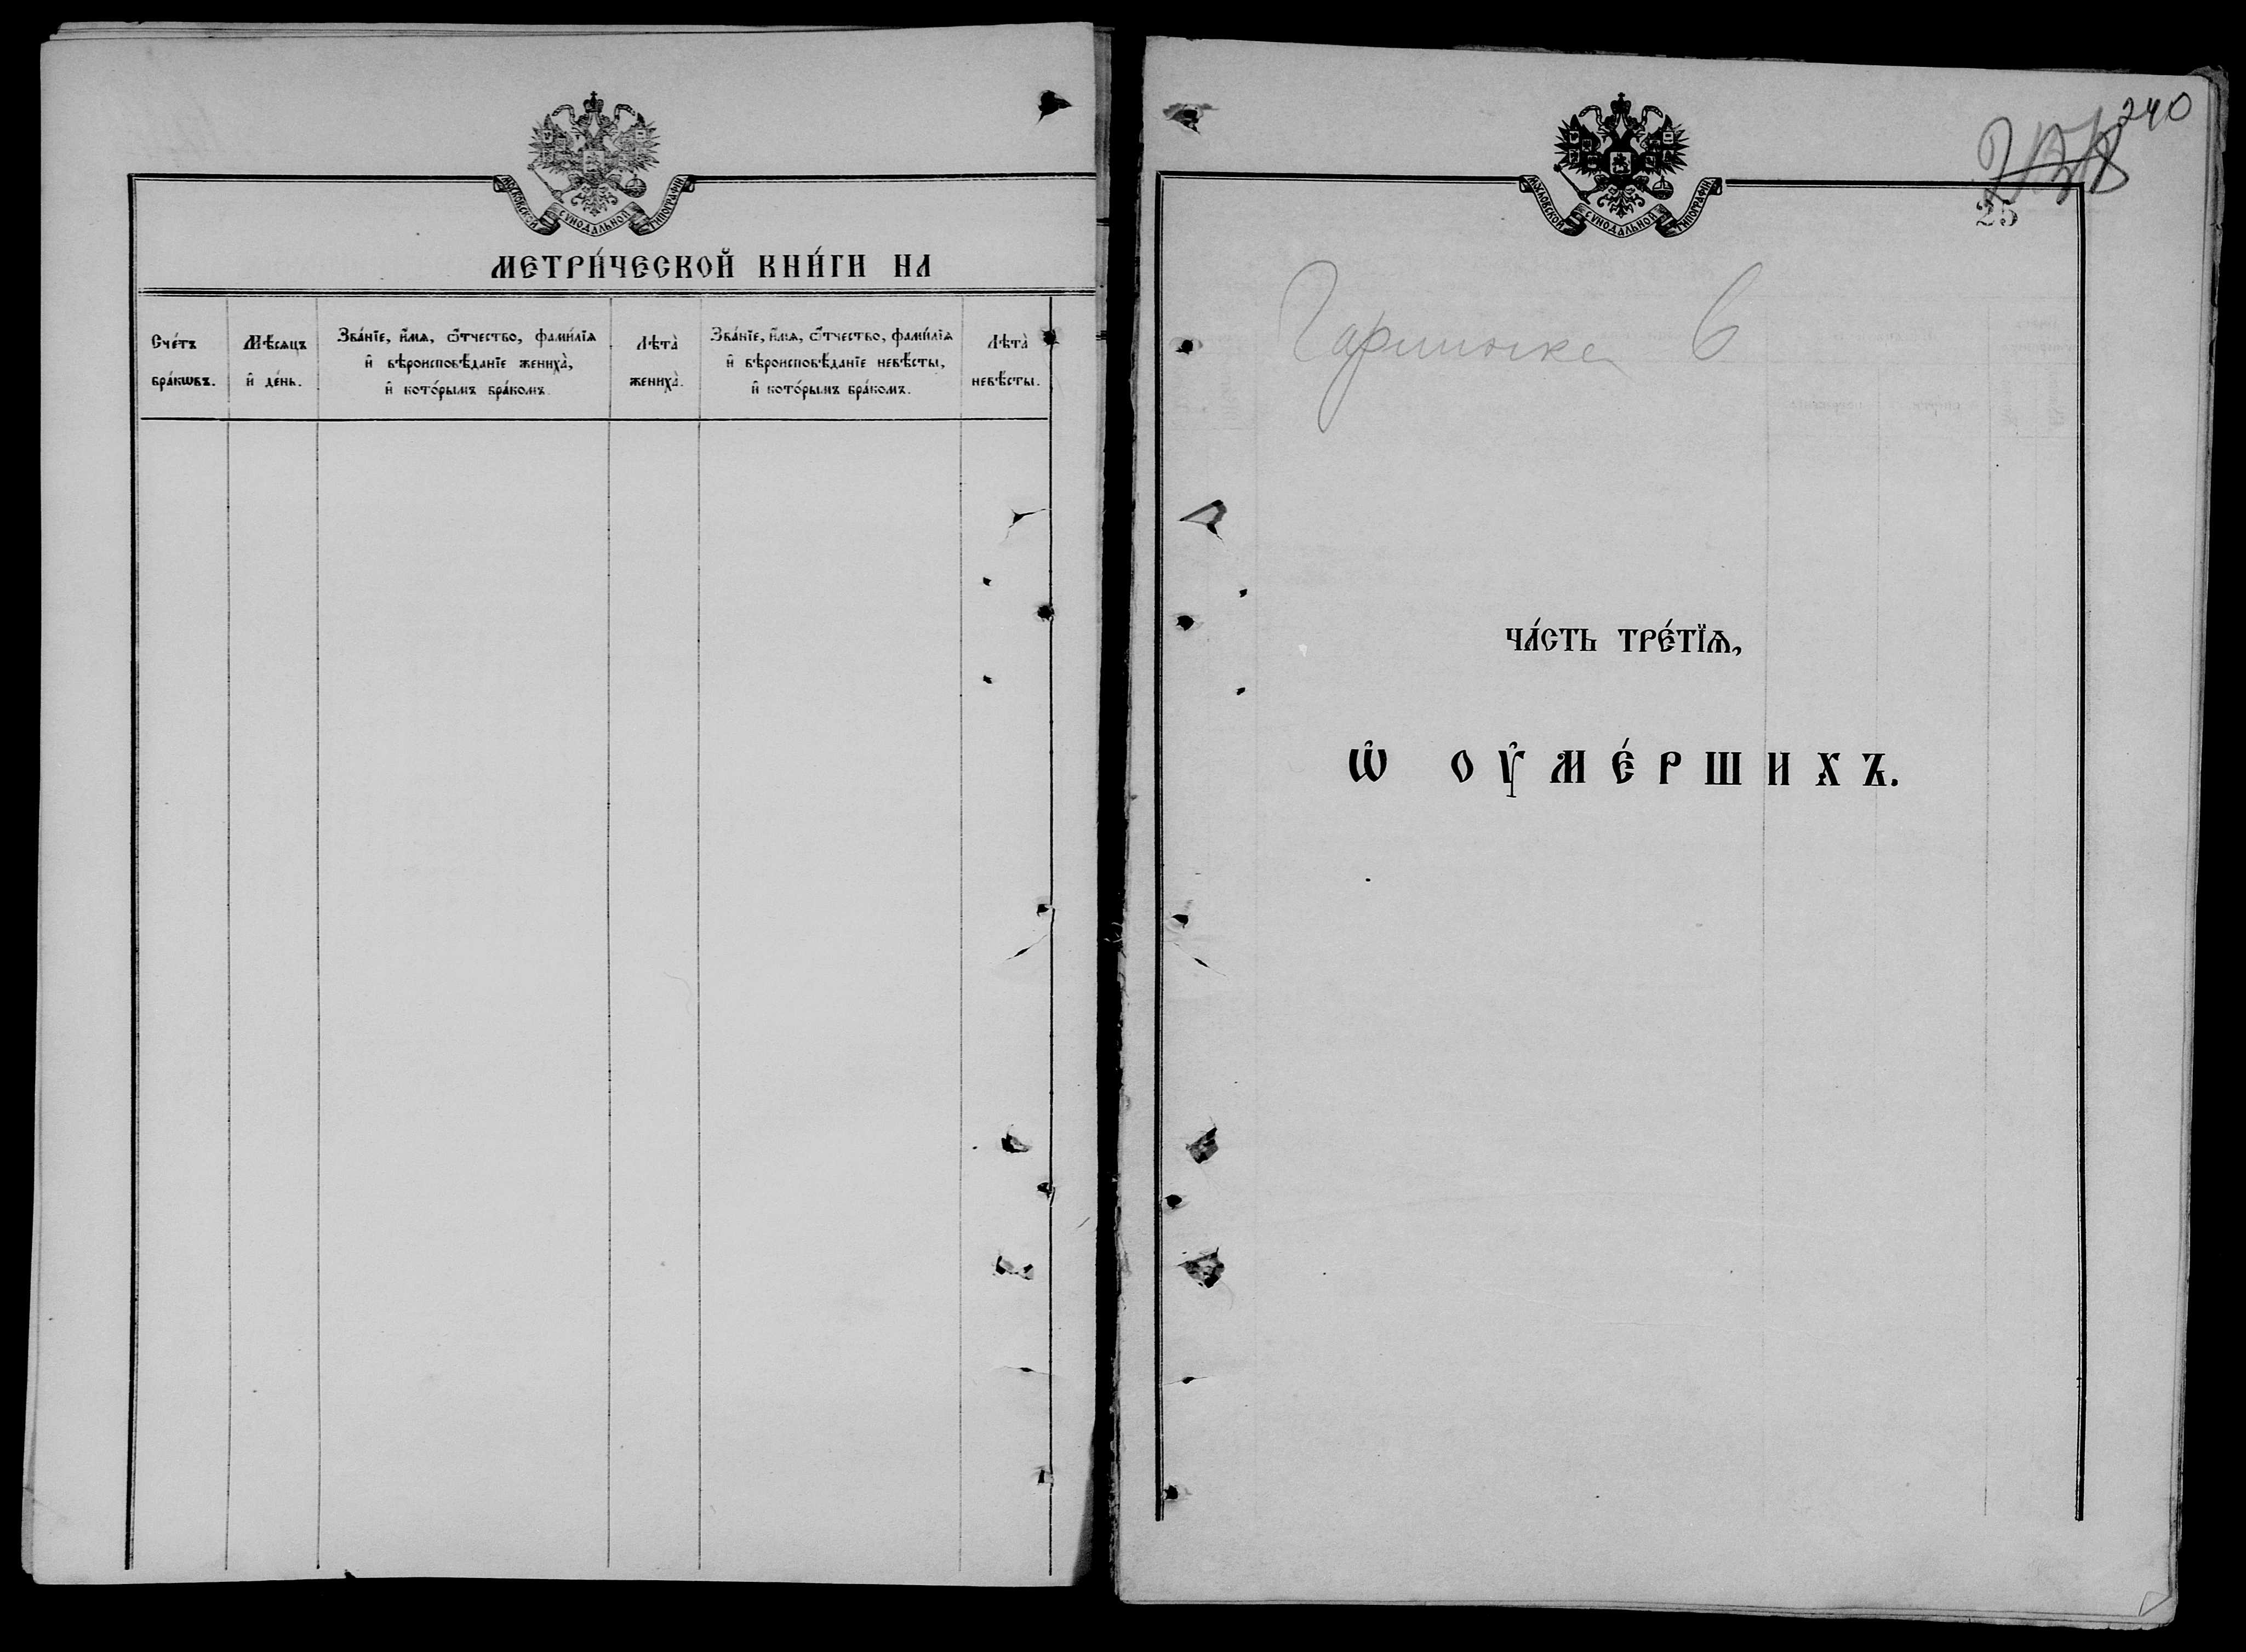 МОСКОВСКОЙ СѴНОДАЛЬНОЙ ТИПОГРАФІИ.
МЕТРИ́ЧЕСКОЙ КНИ́ГИ НА
Сче́тъ бра́кѡвъ.
Мѣ́сяцъ и҆ де́нь.
Зва́нїе, и҆́мѧ, ѻ҆́тчество, фами́лїѧ
и҆ вѣроисповѣ́данїе жениха̀,
и҆ кото́рымъ бра́комъ.
Лѣта̀ жениха̀.
Зва́нїе, и҆́мѧ, ѻ҆́тчество, фами́лїѧ
и҆ вѣроисповѣ́данїе невѣ́сты,
и҆ кото́рымъ бра́комъ.
Лѣта̀ невѣ́сты.
240
МОСКОВСКОЙ СѴНОДАЛЬНОЙ ТИПОГРАФІИ.
25
6
ЧА́СТЬ ТРЕ́ТЇѦ,
Ѡ҆ ОУ҆МЕ́РШИХЪ.